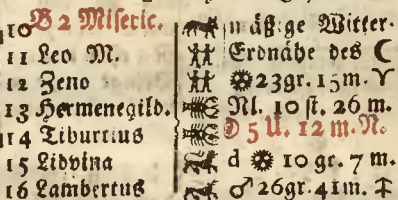 10 B 2 Miseric. mäßige Witter-
11 Leo M. Erdnähe des ☾
12 Zeno ☼ 23gr. 15m. ♈
13 Hermenegild. Nl. 10 st. 26 m.
14 Tiburtius 5 U. 12 m. N.
15 Lidvina d ☼ 10 gr. 7 m.
16 Lambertus ♂ 26gr. 41m.